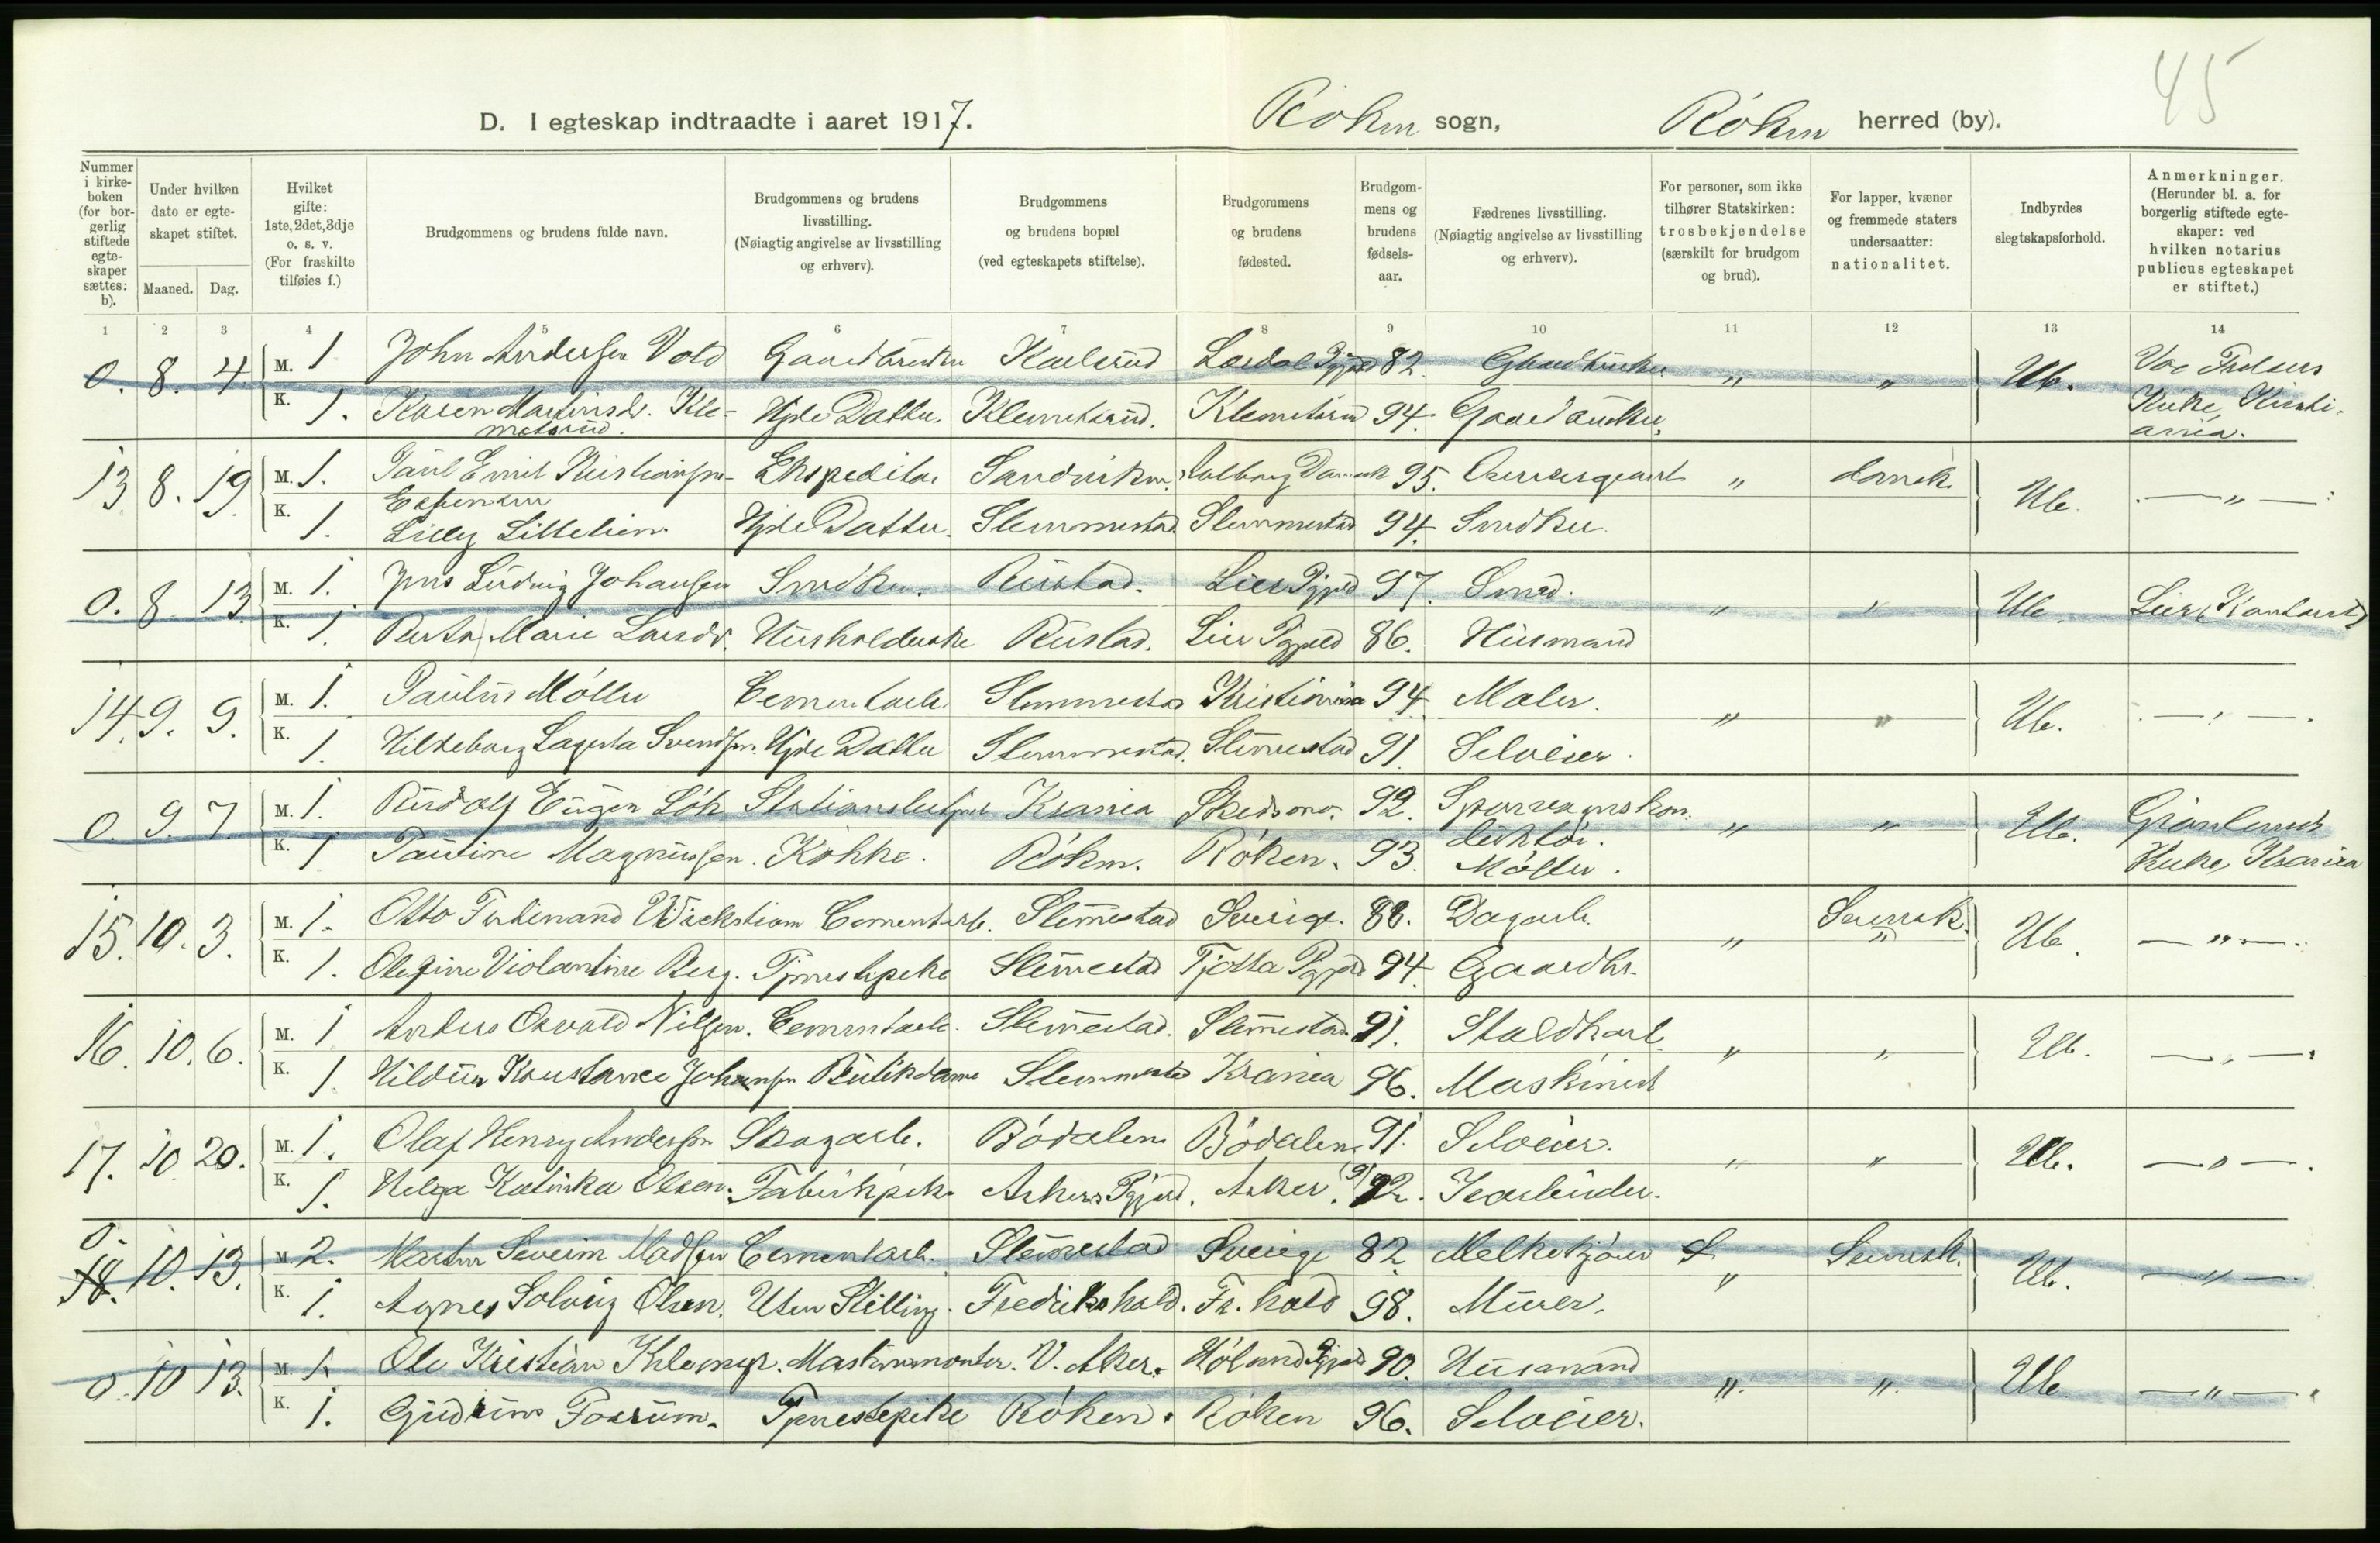 45
D. I egteskap indtraadte i aaret 1917. Röken sogn, Röken herred (by).
Nummer i kirkeboken (for borgerlig stiftede egteskaper sættes: b).
Under hvilken dato er egteskapet stiftet.
Maaned. Dag.
Hvilket gifte: 1ste, 2det, 3dje o. s. v. (For fraskilte tilføies f.)
Brudgommens og brudens fulde navn.
Brudgommens og brudens livsstilling. (Nøiagtig angivelse av livsstilling og erhverv).
Brudgommens og brudens bopæl (ved egteskapets stiftelse).
Brudgommens og brudens fødested.
Brudgommens og brudens fødselsaar.
Fædrenes livsstilling. (Nøiagtig angivelse av livsstilling og erhverv).
For personer, som ikke tilhører Statskirken: trosbekjendelse (særskilt for brudgom og brud).
For lapper, kvæner og fremmede staters undersaatter: nationalitet.
Indbyrdes slegtskapsforhold.
Anmerkninger. (Herunder bl. a. for borgerlig stiftede egteskaper: ved hvilken notarius publicus egteskapet er stiftet.)
1 2 3 4 5 6 7 8 9 10 11 12 13 14
0. 8. 4. M. 1 John Andersen Vold Gaardbruker Karlsrud Lardal Pgjeld 82. Gaardbruker " " Ub. Vor Frelsers
K. 1. Karen Martinsdr. Kle- Hjde Datter. Klemetsrud. Klemetsrud 94. Gaardbruker. Kirke, Kristi-
metsrud. ania.
13. 8. 19. M. 1. Paul Emil Kristiansen- Ekspeditør Sandviken. Aalborg Danmark 95. Oversergeant " dansk Ub. — " —
Espensen
K. 1. Lilly Lillelien Hjde Datter. Slemmestad Slemmestad 94. Snedker.
0. 8. 13. M. 1. Jens Ludvig Johansen Snedker. Rustad. Lier Pgjeld 97. Smed. " " Ub. Lier
K. 1. Berta Marie Larsdr. Husholderske Rustad. Lier Pgjeld 86. Husmand
14. 9. 9. M. 1. Paulus Møller Cementarb. Slemmestad Kristiania 94 Maler. " " Ub. — " —
K. 1. Hildeborg Lagerta Svendsen. Hjde Datter Slemmestad. Slemestad 91. Selveier.
0. 9. 7. M. 1. Rudolf Eugen Løk Stationsbetjent Krania Skedsmo. 92. Sporveiskon- " " Ub. Grønlands
duktør.
K. 1 Pauline Magnussen. Kokke. Röken. Röken. 93. Møller. Kirke, Krania
15. 10. 3. M. 1. Otto Ferdinand Wickstrøm Cementarb. Slemestad Sverige. 88. Dagarb. " Svensk. Ub. — " —
K. 1. Olefine Violantine Berg. Tjenestepike Slemestad Tjøtta Pgjeld 94. Gaardbr. "
16. 10. 6. M. 1 Anders Osvald Nilsen. Cementarb. Slemestad. Slemestad 91. Staldkarl " " Ub. — " —
K. 1 Hildur Konstance Johansen Butikdame Slemmestad Krania 96. Maskinist
17. 10 20. M. 1. Olaf Henry Andersen Skogarb. Bödalen Bödalen 91. Selveier. " " Ub. — " —
K. 1. Helga Katinka Olsen. Fabrikpike Askers Pgjeld. Asker. 92.
0.
18. 10. 13. M. 2. Martin Severin Madsen Cementarb. Slemestad Sverige 82 Melkekjører " Svensk. Ub. — " —
K. 1. Agnes Solveig Olsen. Uten Stilling. Fredrikshald. Fr. hald 98. Murer. "
0. 10 13. M. 1 Ole Kristian Maskinmontør. V. Aker. Höland Pgjeld 90. Husmand " " Ub. — " —
K. 1. Gudrun Fossum. Tjenestepike Röken. Röken 96. Selveier.